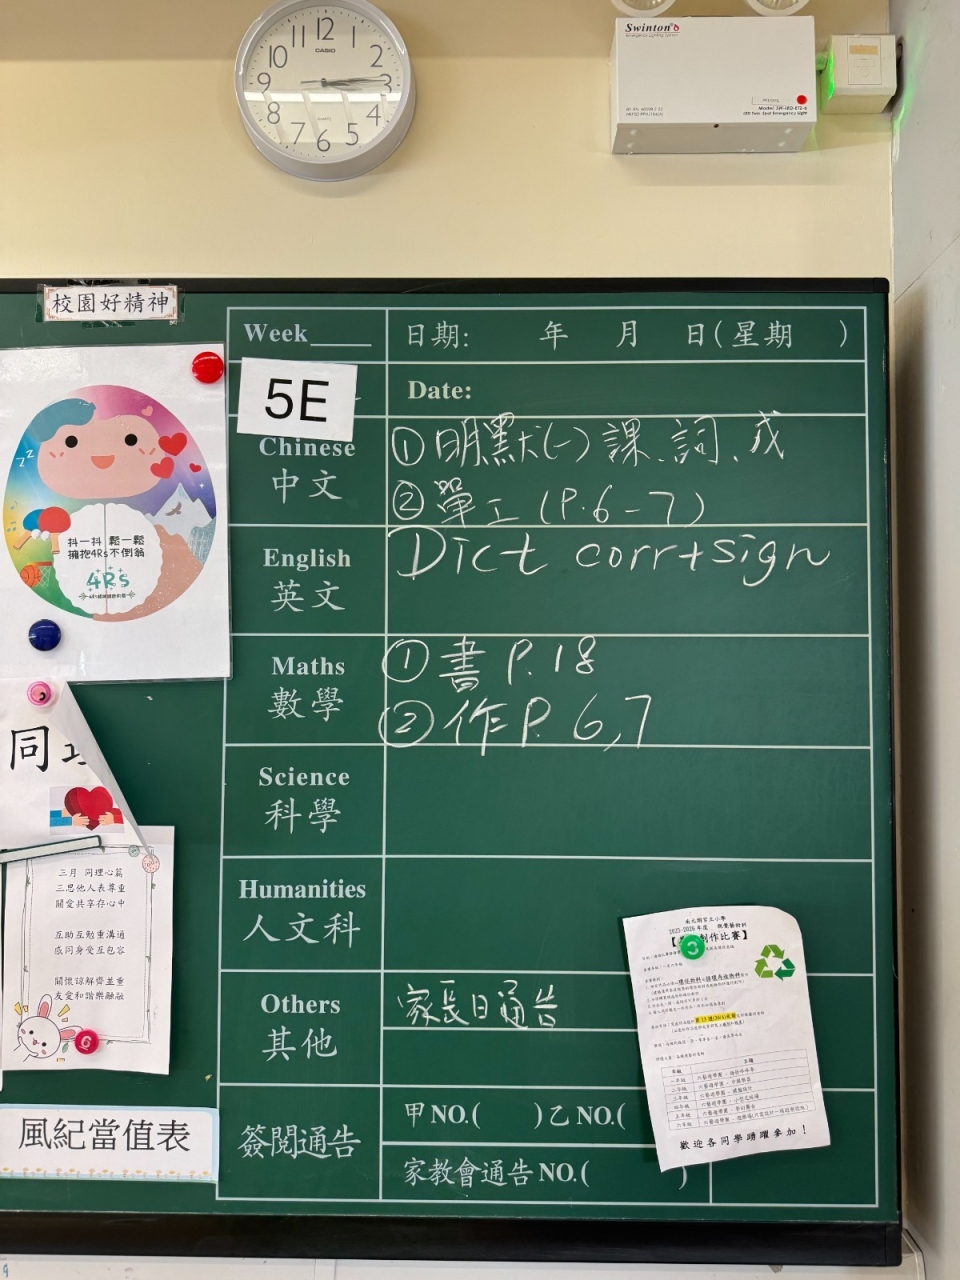 12
11
1
10
2
CASIO
9
3
8
4
7
5
6
Swinton's
Emergency Lighting Series
校園好精神
Week
日期:　年　月　日(星期　)
5E
Date:
Chinese
中文
①明默(一)課、詞、成
②單工 (P.6-7)
English
英文
Dict corr+sign
Maths
數學
①書 P.18
②作P. 6,7
Science
科學
Humanities
人文科
Others
其他
家長日通告
簽閱通告
甲NO.(　)乙NO.(
家教會通告NO.(　)
抖一抖 鬆一鬆
擁抱4Rs不倒翁
4Rs
同
三月 同理心篇
三思他人表尊重
關愛共享存心中
互助互勉重溝通
感同身受互包容
關懷諒解齊並重
友愛和諧樂融融
風紀當值表
創作比賽】
歡迎各同學踴躍參加！